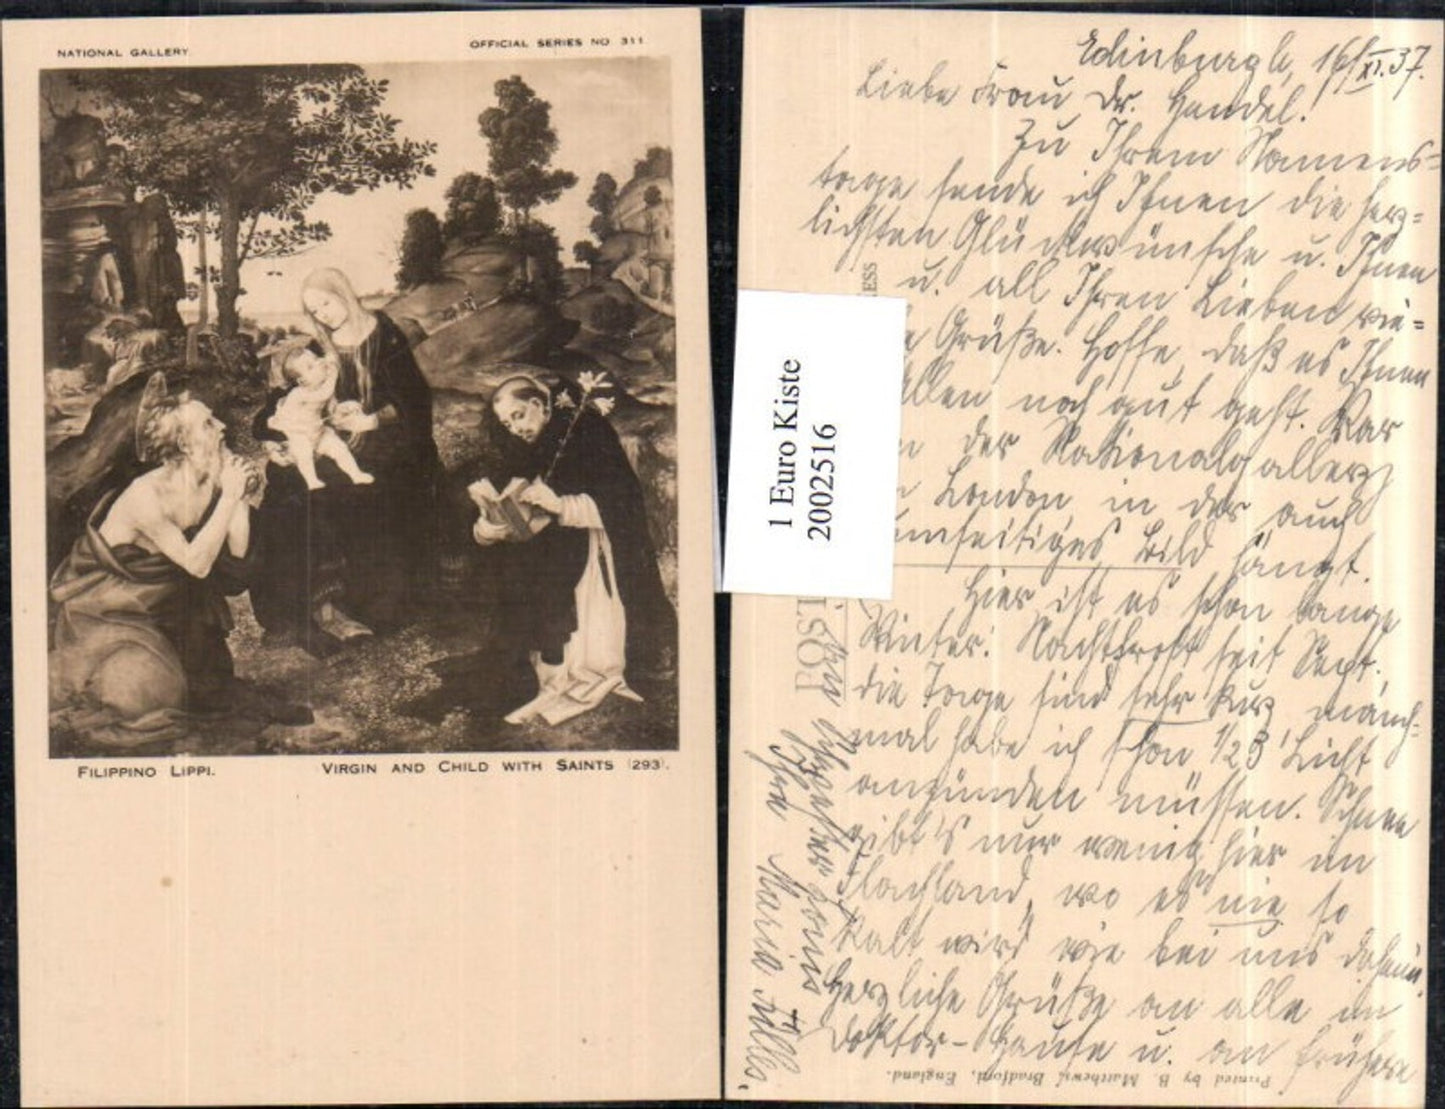 NATIONAL GALLERY
OFFICIAL SERIES NO 311
FILIPPINO LIPPI.
VIRGIN AND CHILD WITH SAINTS (293).
Edinburgh, 16/XI.37.
Liebe Frau Dr. Handel!
Zu Ihrem Namens=
tage sende ich Ihnen die herz=
lichsten Glückwünsche u. Ihnen
u. all Ihren Lieben vie=
e Grüße. Hoffe, daß es Ihnen
Allen noch gut geht. War
der Nationalgallery
London in der auch
umseitiges Bild hängt.
Hier ist es schon lange
Winter: Nachtfrost seit Sept.
die Tage sind sehr kurz, manch-
mal habe ich schon 1/2 3 Licht
anzünden müssen. Schnee
gibt's nur wenig hier im
Flachland, wo es nie so
kalt wird wie bei uns daheim.
Herzliche Grüße an alle im
Doktor-Hause u. an frühere
Schwester
Ihre Maria
RESS
POST
1 Euro Kiste
2002516
Printed by B. Matthews, Bradford, England.